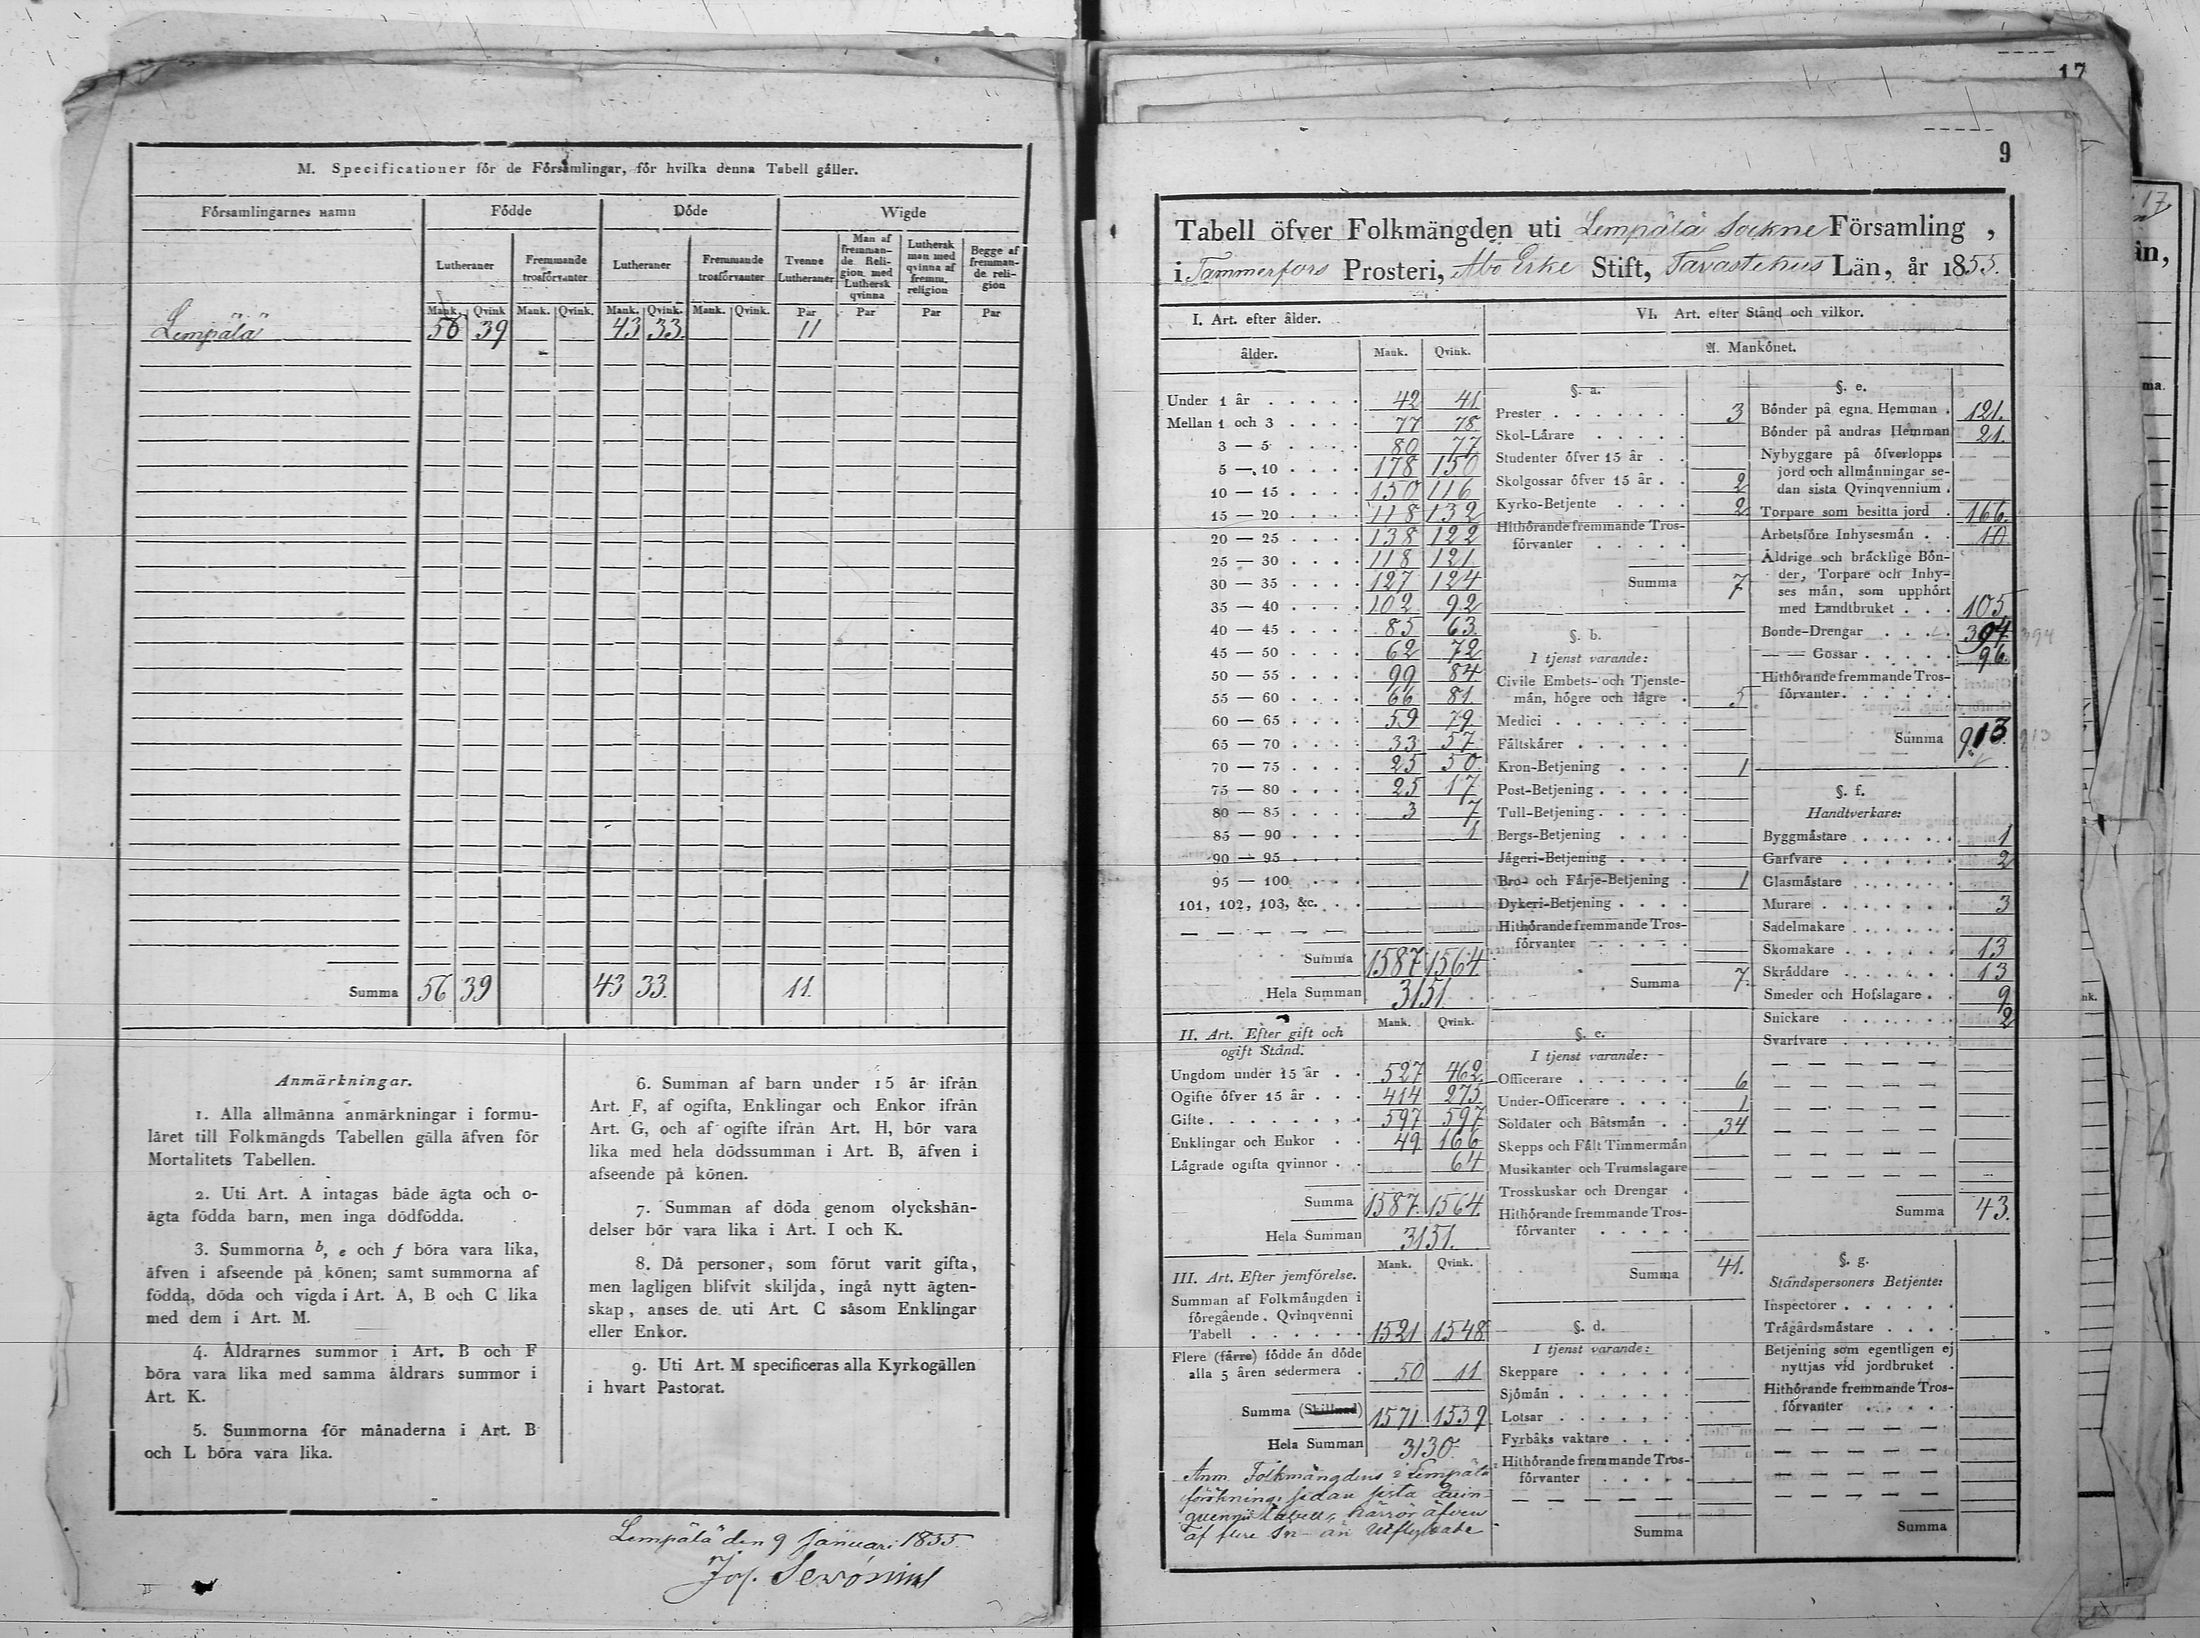 M. Specificationer för de Församlingar, för hvilka denna Tabell gäller.
Församlingarnes namn Födde Döde Wigde
Lutheraner Fremmande trosförvanter Lutheraner Fremmande trosförvanter Tvenne Lutheraner Man af fremmande Religion med Luthersk qvinna Luthersk man med qvinna af fremm. religion Begge af fremmande religion
Mank. Qvink Mank. Qvink. Mank. Qvink. Mank. Qvink. Par Par Par Par
Lempälä 56 39 43 33. 11
Summa 56 39 43 33. 11.
Anmärkningar.
1. Alla allmänna anmärkningar i formu-
läret till Folkmängds Tabellen gälla äfven för
Mortalitets Tabellen.
2. Uti Art. A intagas både ägta och o-
ägta födda barn, men inga dödfödda.
3. Summorna b, e och f böra vara lika,
äfven i afseende på könen; samt summorna af
födda, döda och vigda i Art. A, B och C lika
med dem i Art. M.
4. Åldrarnes summor i Art. B och F
böra vara lika med samma åldrars summor i
Art. K.
5. Summorna för månaderna i Art. B
och L böra vara lika.
6. Summan af barn under 15 år ifrån
Art. F, af ogifta, Enklingar och Enkor ifrån
Art. G, och af ogifte ifrån Art. H, bör vara
lika med hela dödssumman i Art. B, äfven i
afseende på könen.
7. Summan af döda genom olyckshän-
delser bör vara lika i Art. I och K.
8. Då personer, som förut varit gifta,
men lagligen blifvit skiljda, ingå nytt ägten-
skap, anses de uti Art. C såsom Enklingar
eller Enkor.
9. Uti Art. M specificeras alla Kyrkogällen
i hvart Pastorat.
Lempälä den 9 Januari 1855.
17
9
Tabell öfver Folkmängden uti Lempälä Sockne Församling,
i Tammerfors Prosteri, Åbo Erke Stift, Tavastehus Län, år 1855.
I. Art. efter ålder.
ålder. Mank. Qvink.
Under 1 år 42 41
Mellan 1 och 3 77 78
3 — 5 80 77
5 — 10 178 150
10 — 15 150 116
15 — 20 118 132
20 — 25 138 122
25 — 30 118 121
30 — 35 127 124
35 — 40 102 92
40 — 45 85 63
45 — 50 62 72
50 — 55 99 84
55 — 60 66 81
60 — 65 59 79
65 — 70 33 57
70 — 75 25 50
75 — 80 25 17
80 — 85 3 7
85 — 90 1
90 — 95
95 — 100
101, 102, 103, &c.
Summa 1587 1564
Hela Summan 3151
II. Art. Efter gift och
ogift Stånd. Mank. Qvink.
Ungdom under 15 år 527 462
Ogifte öfver 15 år 414 275
Gifte 597 597
Enklingar och Enkor 49 166
Lägrade ogifta qvinnor 64
Summa 1587 1564
Hela Summan 3151.
III. Art. Efter jemförelse. Mank. Qvink.
Summan af Folkmängden i
föregående Qvinqvenni
Tabell 1521 1548
Flere (färre) födde än döde
alla 5 åren sedermera 50 11
Summa (Skillnad) 1571 1539
Hela Summan 3130
Anm. Folkmängdens i Lempälä
förökning, sedan sista Quin-
quennii tabell, härrör äfven
af flere In- än Utflyttade
VI. Art. efter Stånd och vilkor.
A. Mankönet.
§. a.
Prester 3
Skol-Lärare
Studenter öfver 15 år
Skolgossar öfver 15 år 2
Kyrko-Betjente 2
Hithörande fremmande Tros-
förvanter
Summa 7
§. b.
I tjenst varande:
Civile Embets- och Tjenste-
män, högre och lägre 5
Medici
Fältskärer
Kron-Betjening 1
Post-Betjening
Tull-Betjening
Bergs-Betjening
Jägeri-Betjening
Bro- och Färje-Betjening 1
Dykeri-Betjening
Hithörande fremmande Tros-
förvanter
Summa 7.
§. c.
I tjenst varande:
Officerare 6
Under-Officerare 1
Soldater och Båtsmän 34
Skepps och Fält Timmermän
Musikanter och Trumslagare
Trosskuskar och Drengar
Hithörande fremmande Tros-
förvanter
Summa 41.
§. d.
I tjenst varande:
Skeppare
Sjömän
Lotsar
Fyrbåks vaktare
Hithörande fremmande Tros-
förvanter
Summa
§. e.
Bönder på egna Hemman 121.
Bönder på andras Hemman 21.
Nybyggare på öfverlopps
jord och allmänningar se-
dan sista Qvinqvennium
Torpare som besitta jord 166.
Arbetsföre Inhysesmän 10.
Äldrige och bräcklige Bön-
der, Torpare och Inhy-
ses män, som upphört
med Landtbruket 105
Bonde-Drengar 394 394
— — Gossar 96.
Hithörande fremmande Tros-
förvanter
Summa 913 913
§. f.
Handtverkare:
Byggmästare 1
Garfvare 2
Glasmästare
Murare 3
Sadelmakare
Skomakare 13
Skräddare 13
Smeder och Hofslagare 9
Snickare 2
Svarfvare
Summa 43.
§. g.
Ståndspersoners Betjente:
Inspectorer
Trägårdsmästare
Betjening som egentligen ej
nyttjas vid jordbruket
Hithörande fremmande Tros-
förvanter
Summa